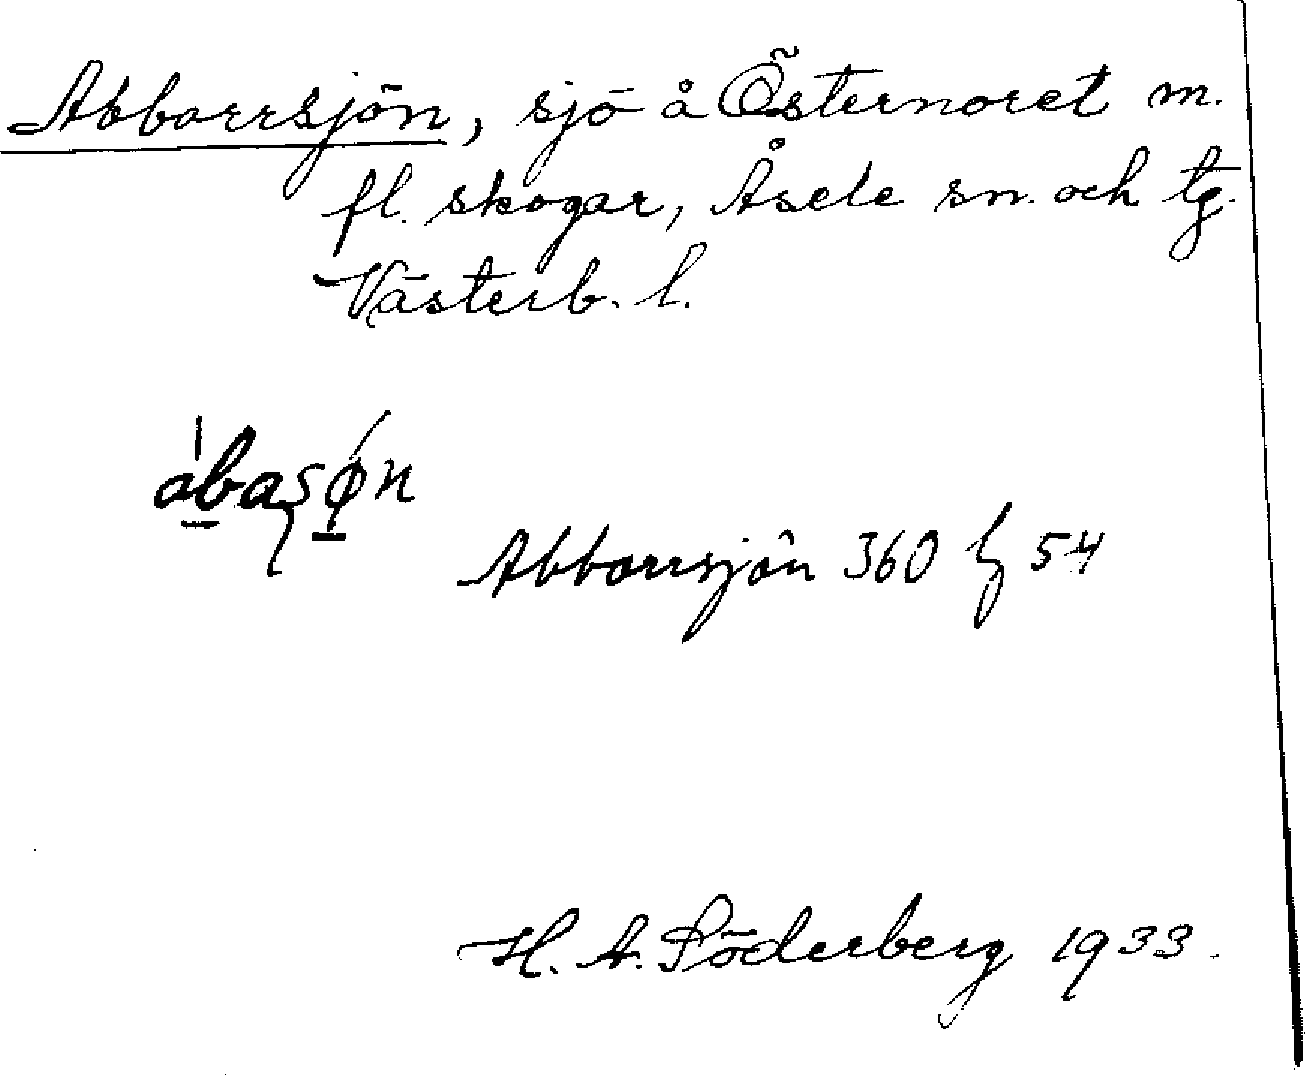 Abborrsjön, sjö å Östernoret m.
fl. skogar, Åsele sn. och tg.
Västerb. l.
Abborrsjön 360 54
H. A. Söderberg 1933.